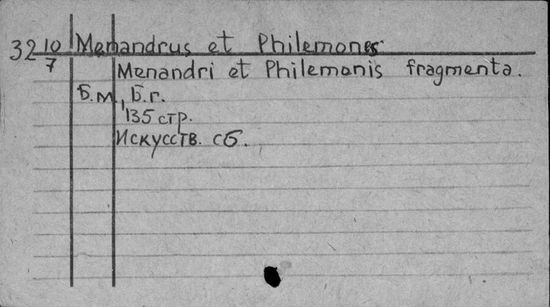 32 10/7 Menandrus et Philemones
Menandri et Philemonis fragmenta.
Б.м., Б.г.
135 стр.
Искусств. сб.